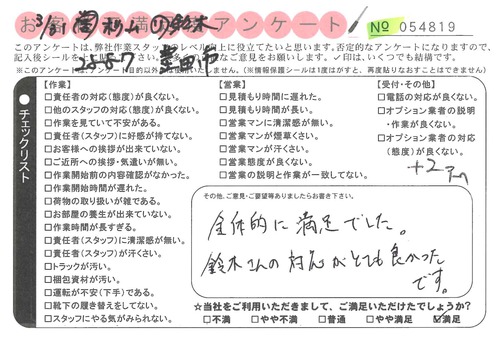 お客様 不満の アンケート
3/31 杉山 鈴木
No 054819
2587 豊田市
このアンケートは、弊社作業スタッフのレベル向上に役立てたいと思います。否定的なアンケートになりますので、
記入後シールを
ご意見をお願いします。✓印は、いくつでも結構です。
※このアンケートは
目的以外
いたしません。(※情報保護シールは1度がすと、再度貼りなおすことはできません)
チェックリスト
【作業】
□責任者の対応(態度)が良くない。
□他のスタッフの対応(態度)が良くない。
□作業を見ていて不安がある。
□責任者(スタッフ)に好感が持てない。
□お客様への挨拶が出来ていない。
□ご近所への挨拶・気遣いが無い。
□作業開始前の内容確認がなかった。
□作業開始時間が遅れた。
□荷物の取り扱いが雑である。
□お部屋の養生が出来ていない。
□作業時間が長すぎる。
□責任者(スタッフ)に清潔感が無い。
□責任者(スタッフ)が汗くさい。
□トラックが汚い。
□梱包資材が汚い。
□運転が不安(下手)である。
□靴下の履き替えをしてない。
□スタッフにやる気がみられない。
【営業】
□見積もり時間に遅れた。
□見積もり時間が長い。
□営業マンに清潔感が無い。
□営業マンが煙草くさい。
□営業マンが汗くさい。
□営業態度が良くない。
□営業の説明と作業が一致してない。
【受付・その他】
□電話の対応が良くない。
□オプション業者の説明
・作業が良くない。
□オプション業者の対応
(態度)が良くない。
+2
その他、ご意見・ご要望等ありましたらお書き下さい。
全体的に満足でした。
鈴木さんの対応がとても良かった
です。
☆当社をご利用いただきまして、ご満足いただけたでしょうか?
□不満 □やや不満 □普通 □やや満足 ☑満足